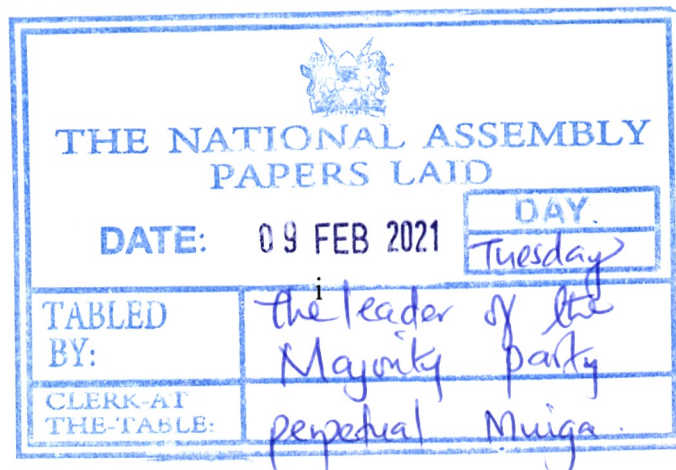 THE NATIONAL ASSEMBLY
PAPERS LAID
DATE: 09 FEB 2021
DAY.
Tuesday
i
TABLED BY: the leader of the
Majority party
CLERK-AT
THE-TABLE: perpetual Muiga.